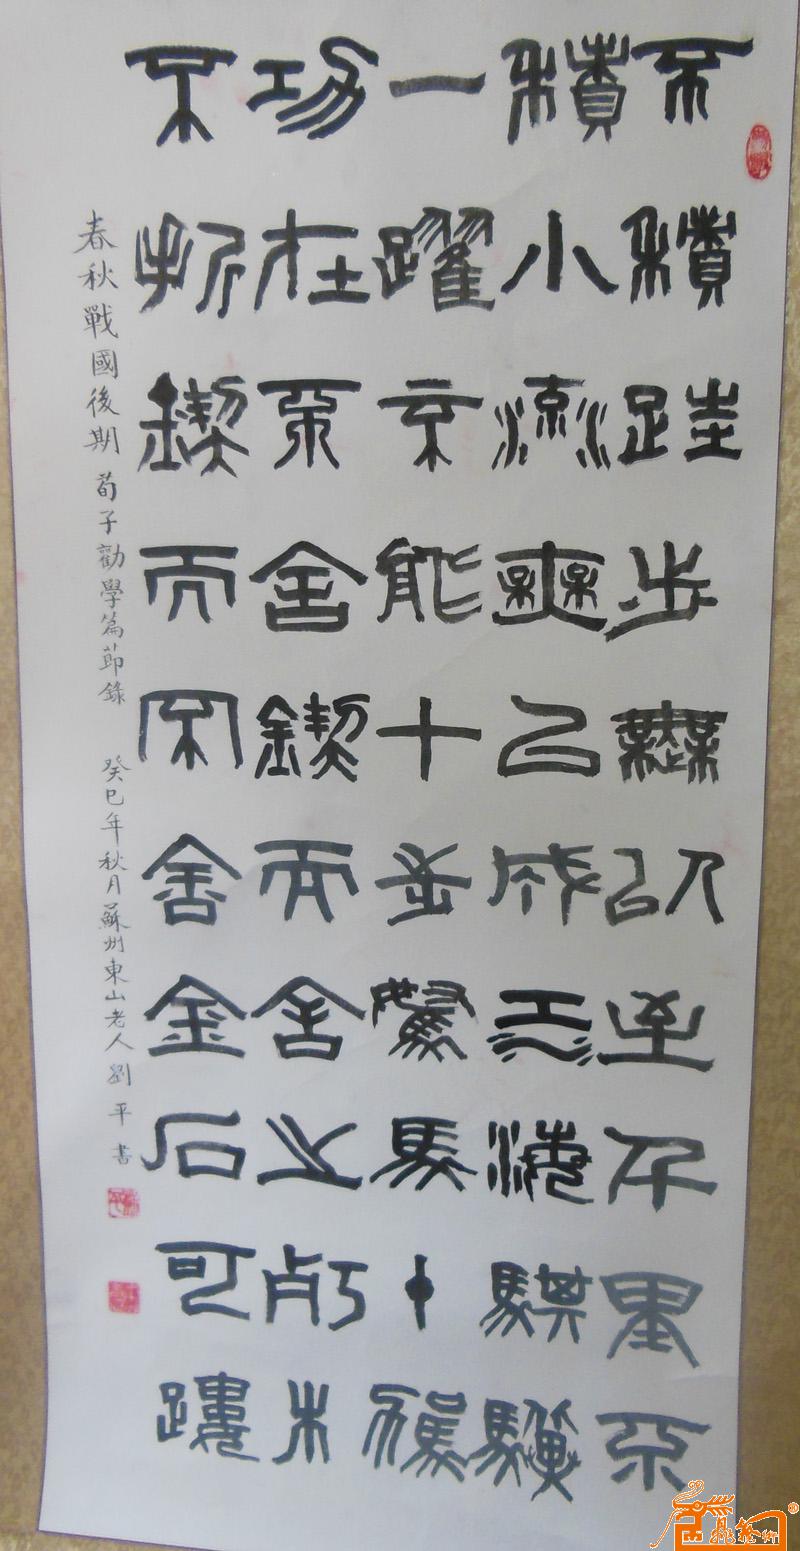 不積跬步無以至千里不
積小流無以成江海騏驥
一躍不能十步駑馬十駕
功在不舍鍥而舍之朽木
不折鍥而不舍金石可鏤
春秋戰國後期荀子勸學篇節錄 癸巳年秋月蘇州東山老人劉平書